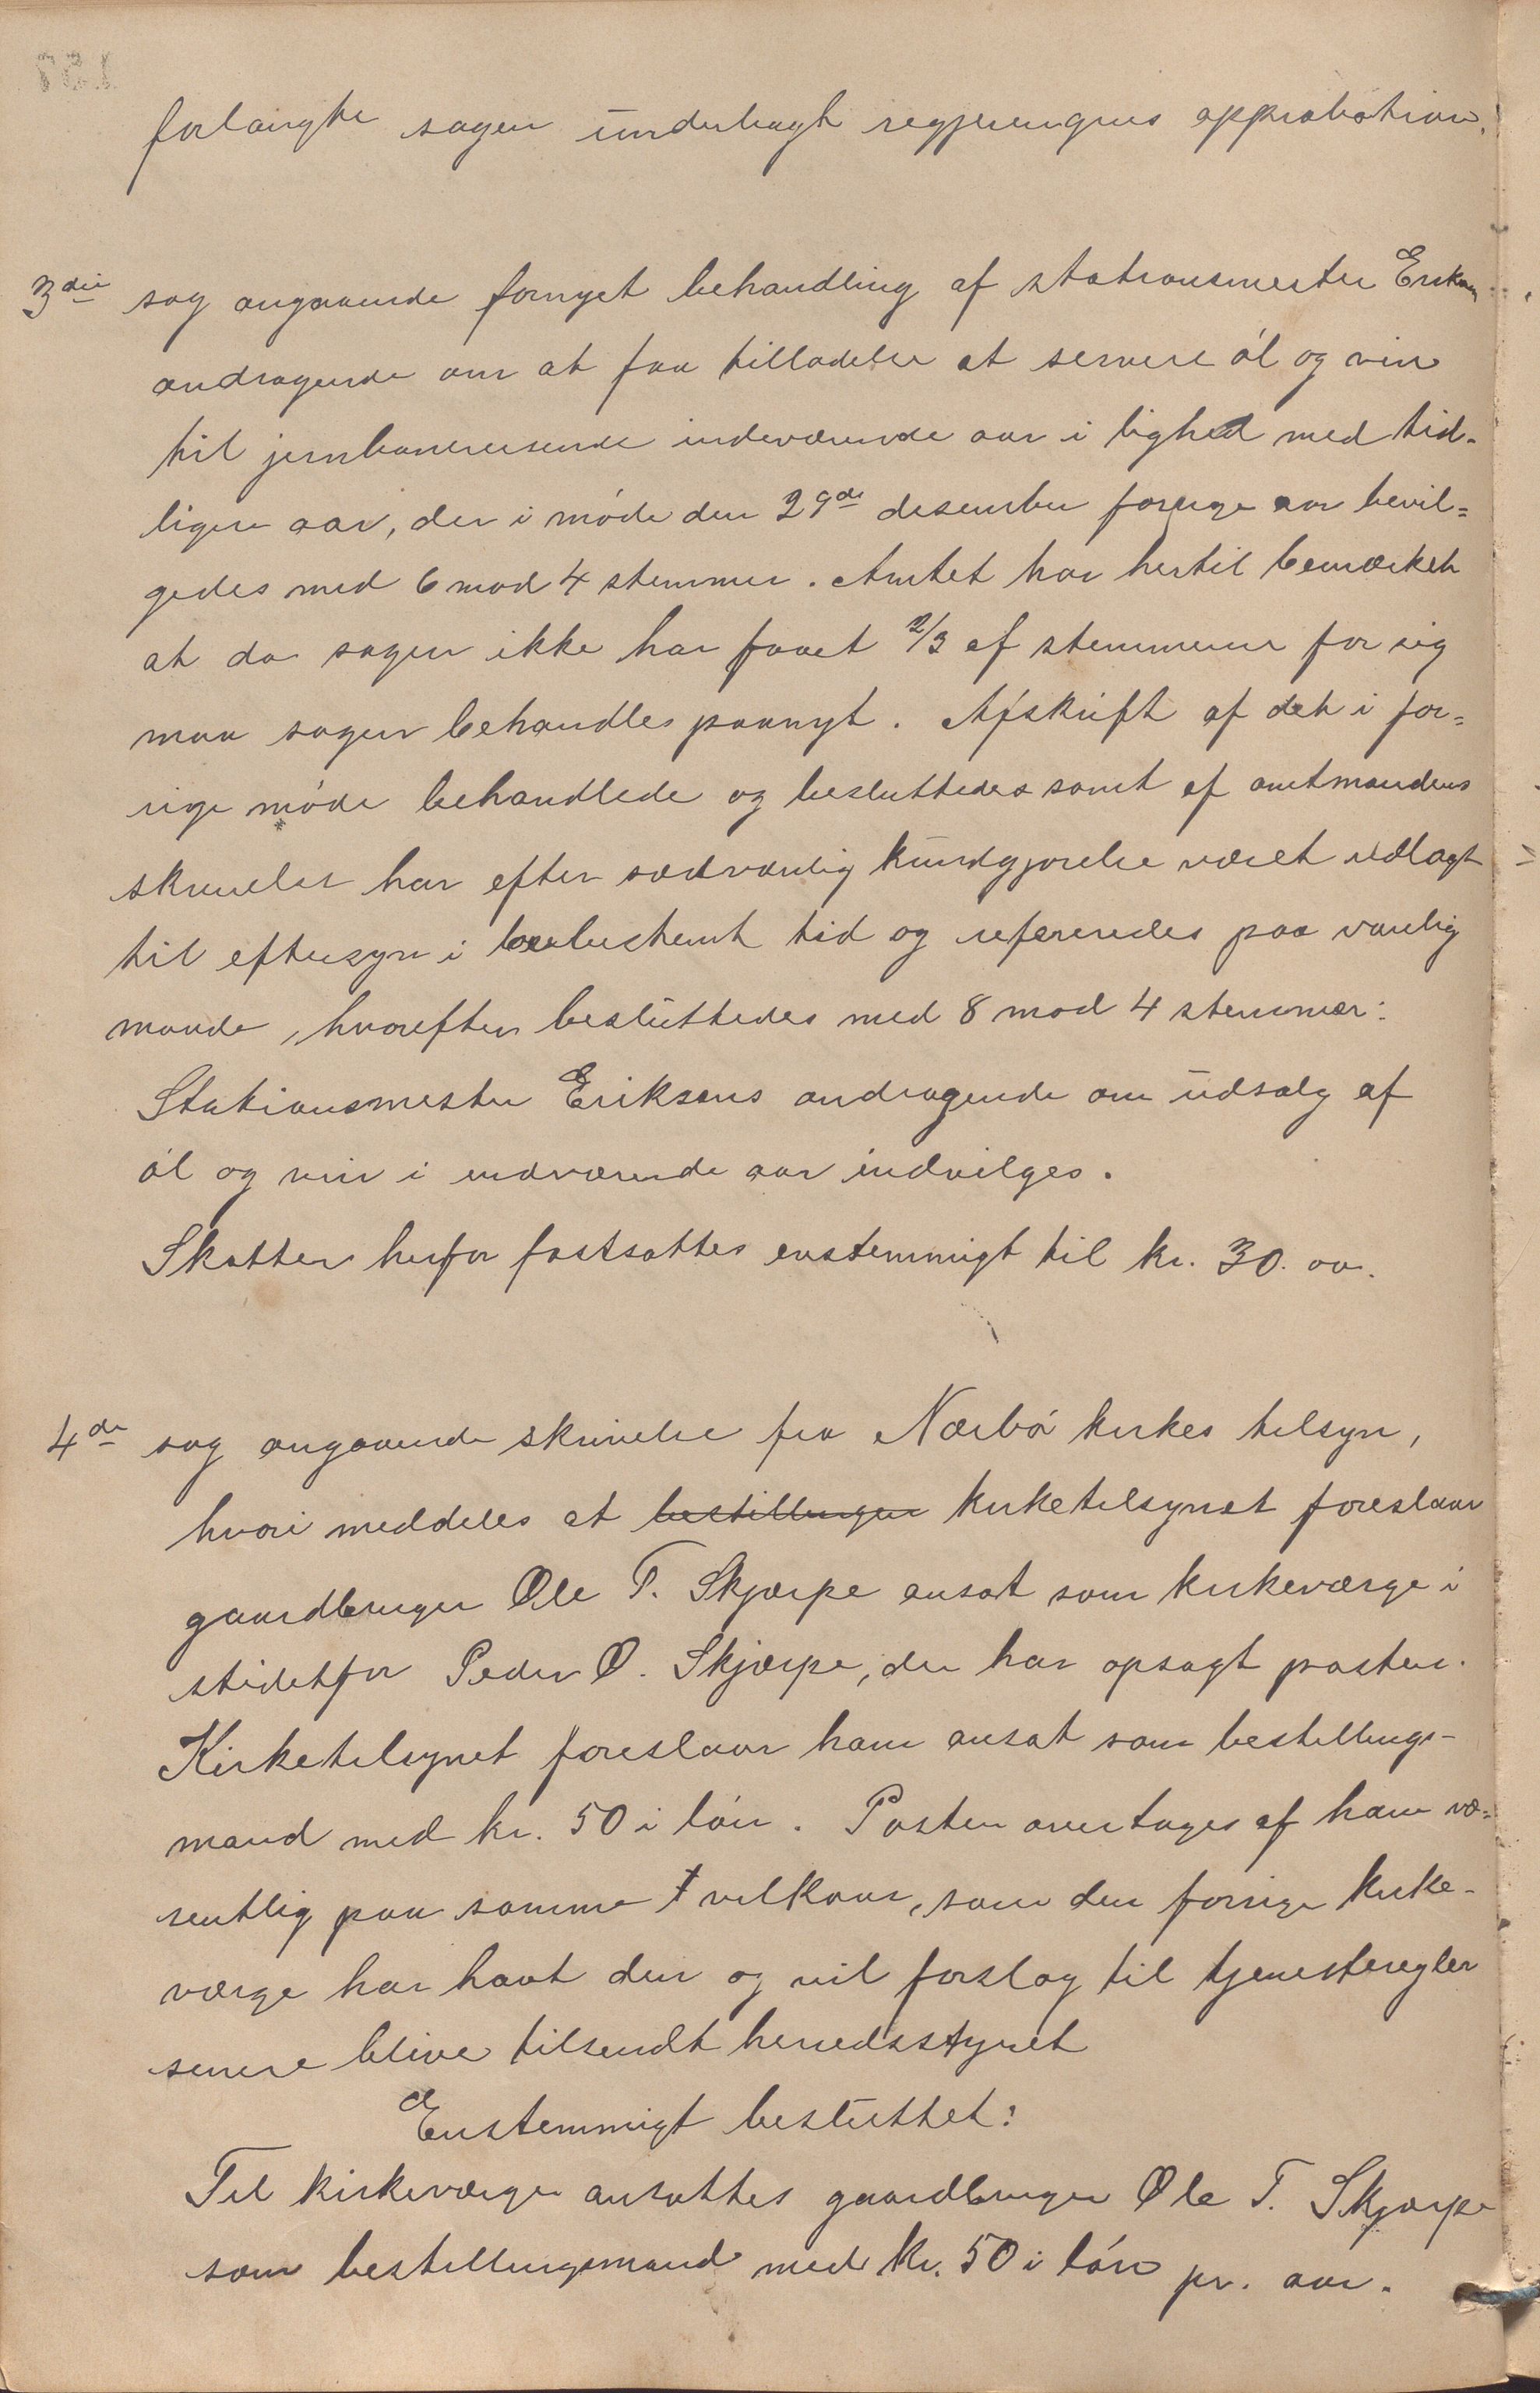 forlangte sagen underlagt regjeringens approbation.
3die sag angaaende fornyet behandling af stationsmester Eriksens
andragende om at faa tilladelse at servere øl og vin
til jernbanereisende indeværende aar i lighed med tid-
ligere aar, der i møde den 29de desember forrige aar bevil=
gedes med 6 mod 4 stemmer. Amtet har hertil bemærket
at da sagen ikke har faaet 2/3 af stemmerne for sig
maa sagen behandles paanyt. Afskrift af det i for=
rige møde behandlede og besluttedes samt af amtmandens
skrivelse har efter sædvanlig kundgjørelse været udlagt
til eftersyn i lovbestemt tid og refereredes paa vanlig
maade, hvorefter besluttedes med 8 mod 4 stemmer:
Stationsmester Eriksens andragende om udsalg af
øl og vin i indværende aar indvilges.
Skatten herfor fastsattes enstemmigt til kr. 30.00.
4de sag angaaende skrivelse fra Nærbø kirkes tilsyn,
hvori meddeles at bestillingen kirketilsynet foreslaar
gaardbruger Ole T. Skjærpe ansat som kirkeværge i
stedetfor Peder O. Skjærpe, der har opsagt posten.
Kirketilsynet foreslaar ham ansat som bestillings-
mand med kr. 50 i løn. Posten overtages af ham væ-
sentlig paa samme vilkaar, som den forrige kirke-
værge har havt den og vil forslag til tjenesteregler
senere blive tilsendt herredsstyret
Enstemmigt besluttet:
Til kirkeværge ansattes gaardbruger Ole T. Skjærpe
som bestillingsmand med kr. 50 i løn pr. aar.